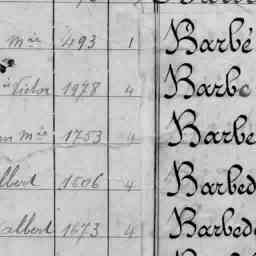 Mie 493 1 Barbé
Victor 1978 4 Barbe
Mie 1753 4 Barbe
lbert 1506 4 Barbed
albert 1673 4 Barbede